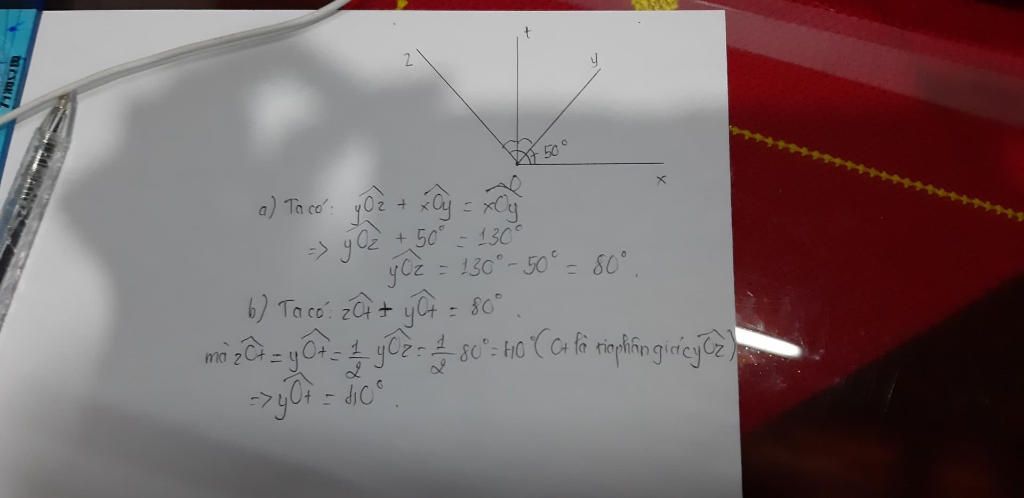 t
z
y
50°
O
x
a) Ta có: yÔz + xÔy = xÔy
=> yÔz + 50° = 130°
yÔz = 130° - 50° = 80°.
b) Ta có: zÔt + yÔt = 80°.
mà zÔt = yÔt = 1/2 yÔz = 1/2 80° = 40° (Ot là tia phân giác yÔz)
=> yÔt = 40°.